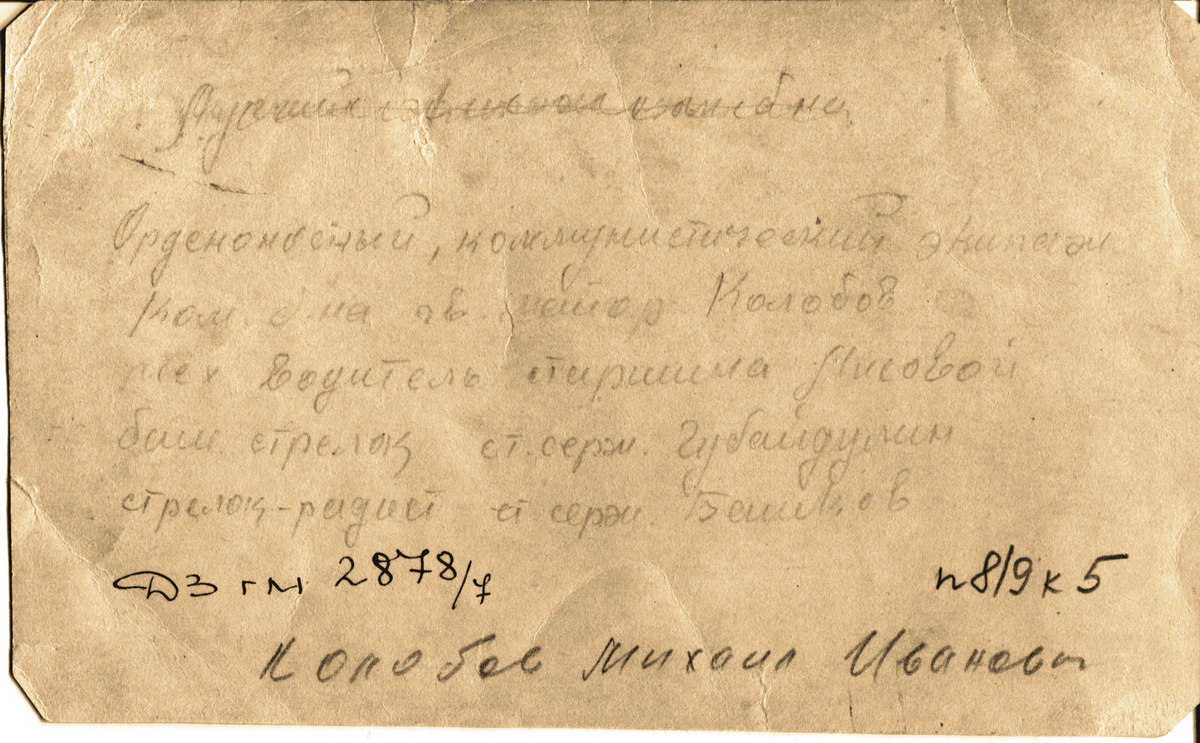 Орденоносный, коммунистический экипаж
Ком. б-на гв. майор Колобов
мех водитель старшина Лисовой
баш стрелок ст. серж. Губайдулин
стрелок-радист ст серж. Башков
ДЗ гм 2878/7
п8/9 к 5
Колобов Михаил Иванович